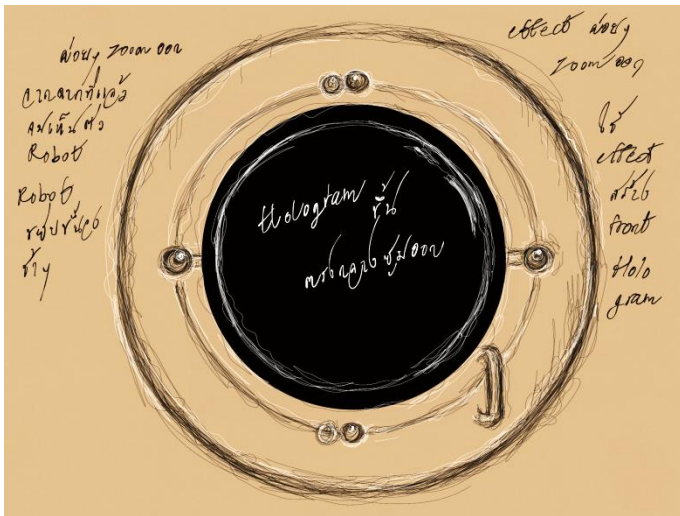 ค่อยๆ zoom ออก
จากฉากที่แล้ว
จนเห็นตัว
Robot
Robot
ขยับขึ้นลง
ช้าๆ
Hologram ขึ้น
ตรงกลาง ซูมออก
effect ค่อยๆ
zoom ออก
ใช้
effect
สร้าง
Front
Holo
gram